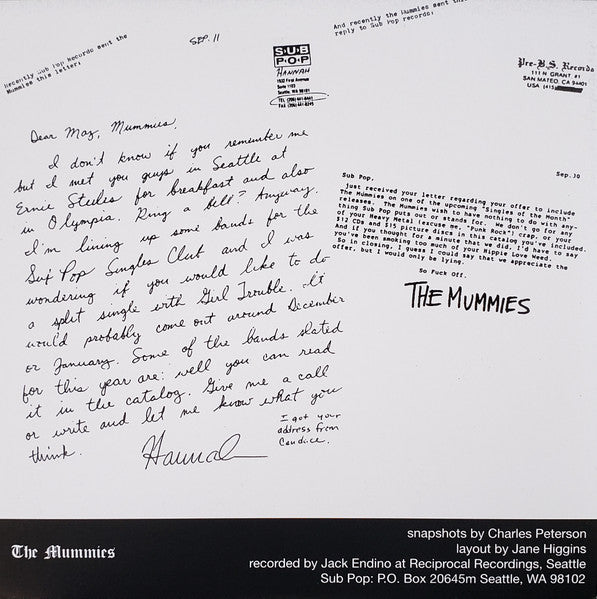 Recently Sub Pop Records sent the
Mummies this letter:
SEP. 11
SUB
POP
HANNAH
1932 First Avenue
Suite 1103
Seattle, WA 98101
TEL (206) 441-8441
FAX (206) 441-8245
Dear Maz, Mummies,
I don't know if you remember me
but I met you guys in Seattle at
Ernie Steeles for breakfast and also
in Olympia. Ring a bell? Anyway.
I'm lining up some bands for the
Sub Pop Singles Club and I was
wondering if you would like to do
a split single with Girl Trouble. It
would probably come out around December
or January. Some of the bands slated
for this year are: well you can read
it in the catalog. Give me a call
or write and let me know what you
think.
Hannah
I got your
address from
Candice.
And recently the Mummies sent this
reply to Sub Pop records:
Pre-B.S. Records
111 N GRANT #1
SAN MATEO, CA 94401
USA (415)
Sep. 30
Sub Pop,
just received your letter regarding your offer to include
The Mummies on one of the upcoming "Singles of the Month"
releases. The Mummies wish to have nothing to do with any-
thing Sub Pop puts out or stands for. We don't go for any
of your Heavy Metal (excuse me, "Punk Rock") crap, or your
$12 CDs and $15 picture discs in this catalog you've included.
And if you thought for a minute that we did, I'd have to say
you've been smoking too much of your Hippie Love Weed.
So in closing, I guess I could say that we appreciate the
offer, but I would only be lying.
So Fuck Off,
THE MUMMIES
The Mummies
snapshots by Charles Peterson
layout by Jane Higgins
recorded by Jack Endino at Reciprocal Recordings, Seattle
Sub Pop: P.O. Box 20645m Seattle, WA 98102